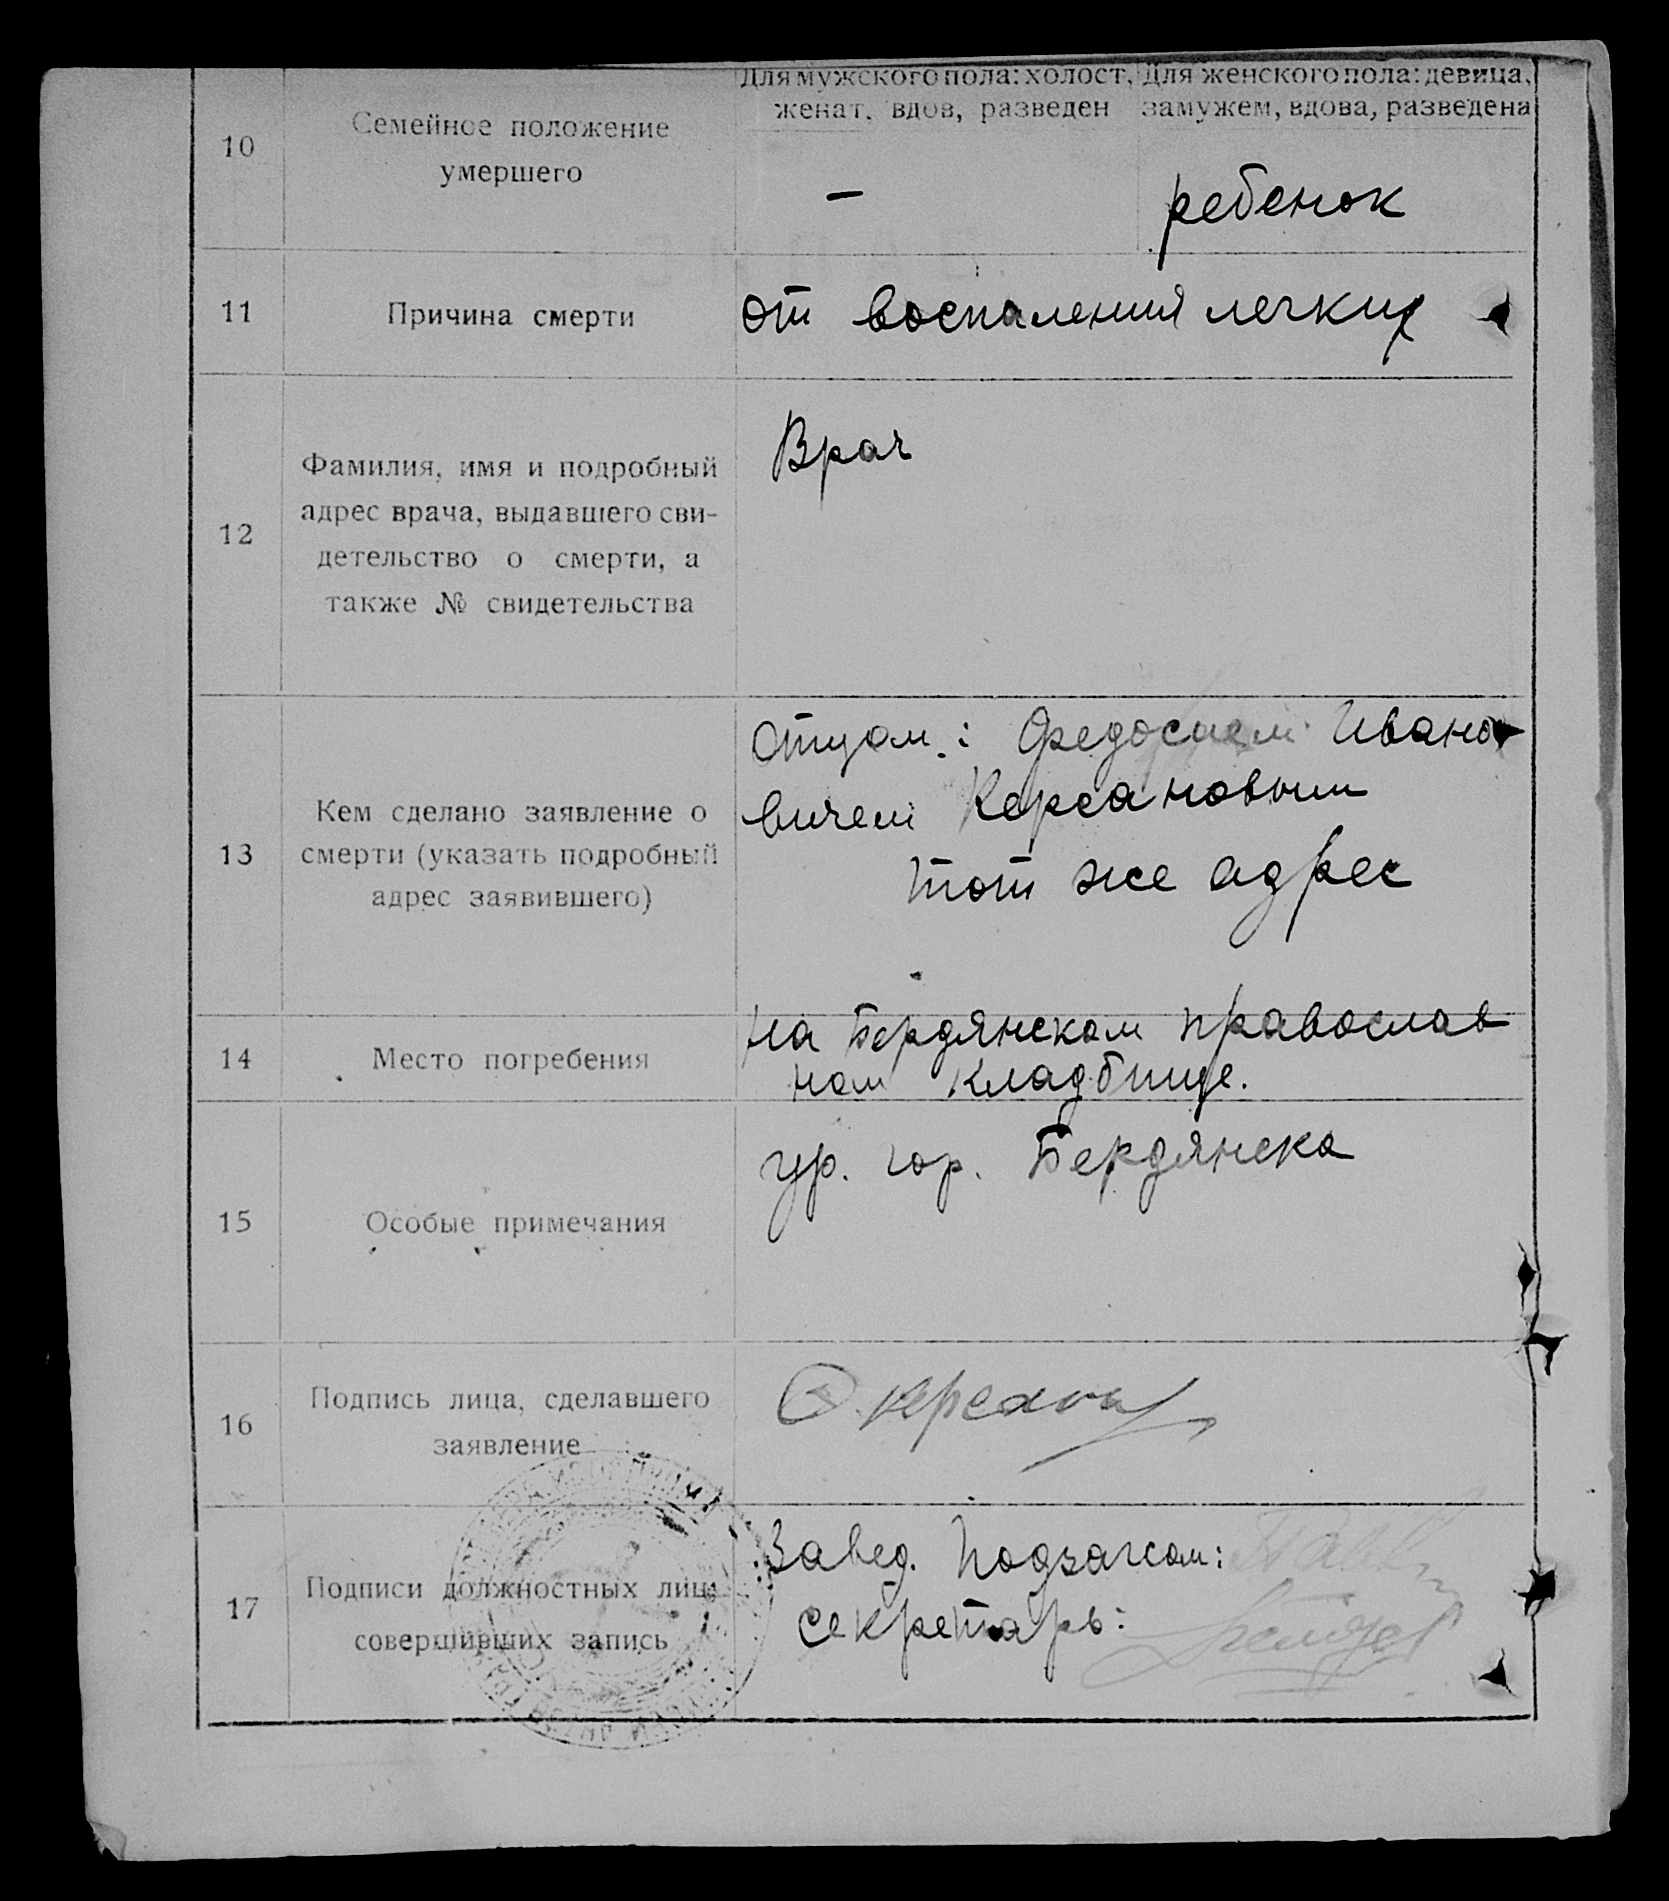 Для мужского пола: холост,
женат, вдов, разведен
Для женского пола: девица,
замужем, вдова, разведена
10
Семейное положение
умершего
—
ребенок
11
Причина смерти
от воспаления легких
12
Фамилия, имя и подробный
адрес врача, выдавшего сви-
детельство о смерти, а
также № свидетельства
Врач
13
Кем сделано заявление о
смерти (указать подробный
адрес заявившего)
Отцом: Федосием Ивано
вичем Керсановым
тот же адрес
14
Место погребения
на Бердянском православ
ном кладбище.
15
Особые примечания
ур. гор. Бердянска
16
Подпись лица, сделавшего
заявление
17
Подписи должностных лиц,
совершивших запись
Завед. Подзагсом:
секретарь: